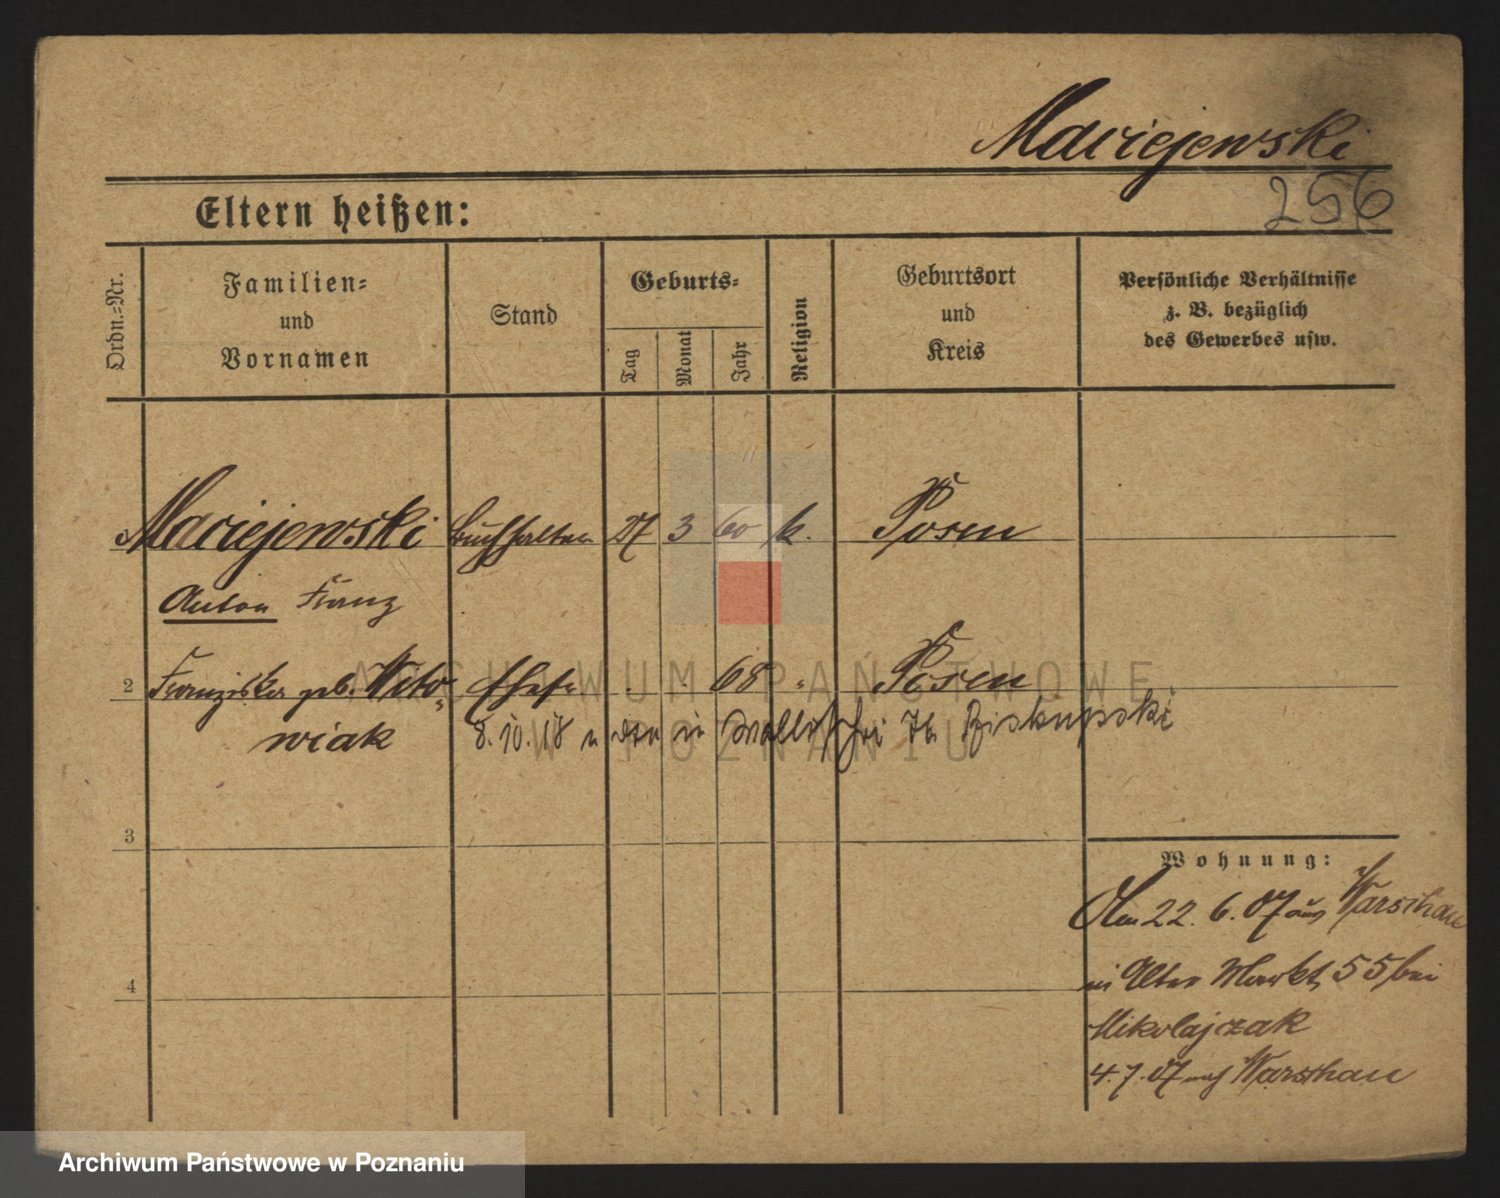 Maciejewski
256
Eltern heißen:
Ordn.-Nr.
Familien-
und
Vornamen
Stand
Geburts-
Tag
Monat
Jahr
Religion
Geburtsort
und
Kreis
Persönliche Verhältnisse
z. B. bezüglich
des Gewerbes usw.
1 Maciejewski Buchhalter 27 3 60 k. Posen
Anton Franz
2 Franziska geb. Wito- Ehefr. 68 " Posen
wiak
8. 10. 18 in Wallischei 76 Biskupski
3
Wohnung:
Am 22. 6. 07 aus Warschau
in Alter Markt 55 bei
Mikolajczak
4
4. 7. 07 nach Warschau
ARCHIWUM PAŃSTWOWE
W POZNANIU
Archiwum Państwowe w Poznaniu